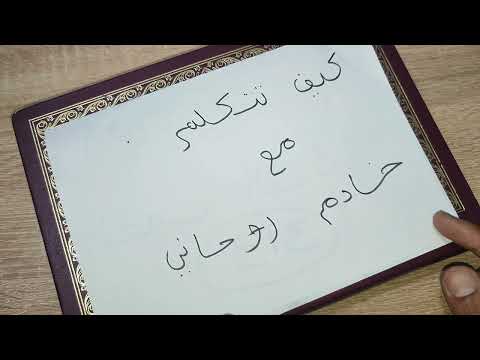 كيف تتكلم
مع
خادم روحاني